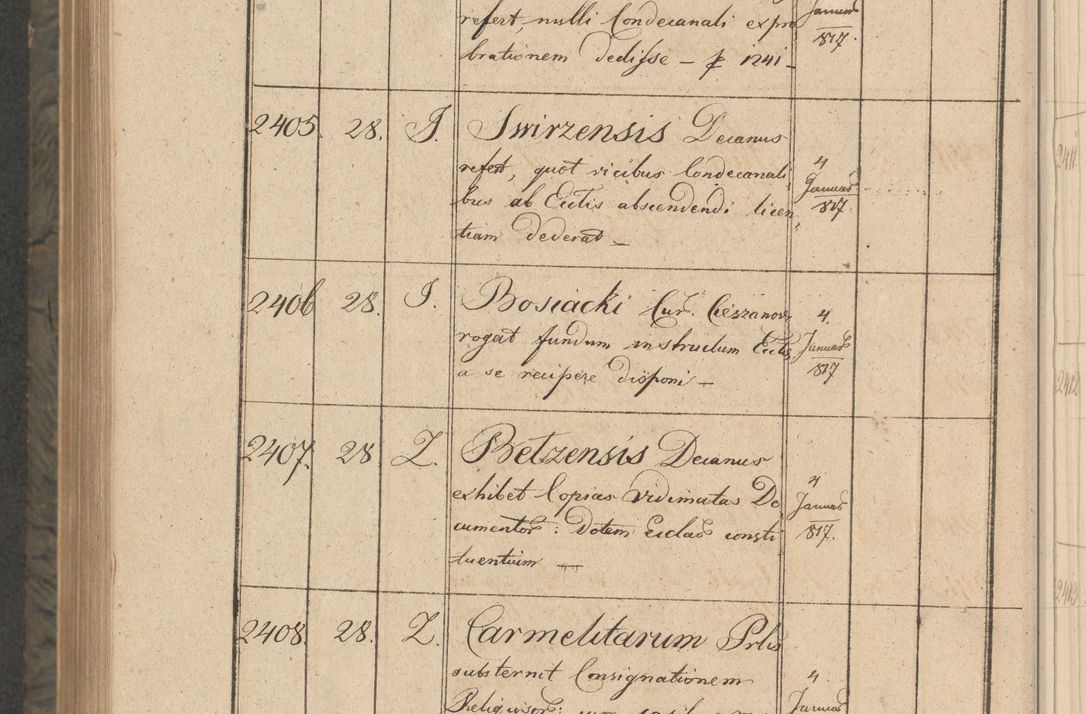 refert, nulli Condecanali expro
brationem dedisse – p 1241 –
Januar
817.
2405. 28. J. Swirzensis Decanus
refert, quot vicibus Condecanali
bus ab Ecclis abscendendi licen
tiam dederat –
4
Januar
817.
2406 28. J. Bosiacki Cur. Cieszanov
rogat fundum instructum Ecclis
a se recipere disponi –
4.
Januar
817
2407. 28. Z. Betzensis Decanus
exhibet Copias vidimatas Do
cumentor: Dotem Ecclar consti
tuentium –
4
Januar
817.
2408 28. Z. Carmelitarum Prlis
substernit Consignationem
Religiosor: cum
4.
Januar
2411
2412
2413